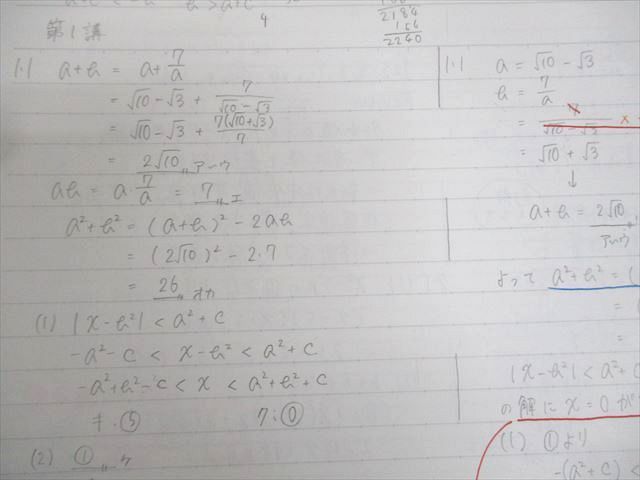 4
2184
2240
第1講
1.1 a+b = a+7/a
= √10-√3 + 7/(√10-√3)
= √10-√3 + 7(√10+√3)/7
= 2√10 〃アーウ
ab = a・7/a = 7 〃エ
a²+b² = (a+b)²-2ab
= (2√10)²-2・7
= 26 〃オカ
(1) |x-b²| < a²+c
-a²-c < x-b² < a²+c
-a²+b²-c < x < a²+b²+c
キ.⑤ ク:⓪
(2) ① 〃ケ
1.1 a = √10-√3
b = 7/a
= 7/(√10-√3) ×
= √10+√3
↓
a+b = 2√10
アーウ
よって a²+b² = (
=
=
|x-b²| < a²+c
の解に x=0 が
(1) ①より
-(a²+c) <